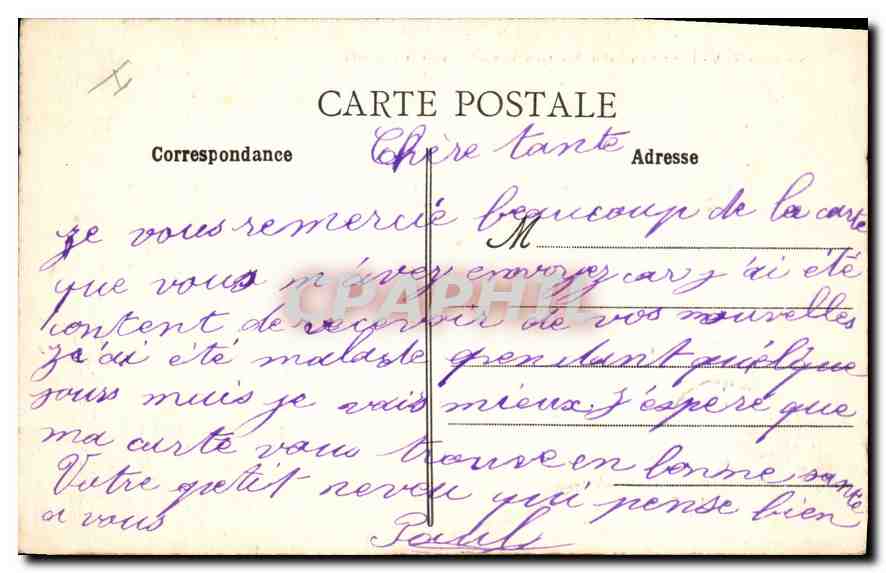 CARTE POSTALE
Correspondance
Adresse
Chère tante
je vous remercie beaucoup de la carte
M
que vous m'avez envoyez car j'ai été
CPAPHIL
content de recevoir de vos nouvelles
j'ai été malade pendant quélque
jours mais je vais mieux. j'espère que
ma carte vous trouve en bonne santé
Votre petit neveu qui pense bien
a vous
Paul